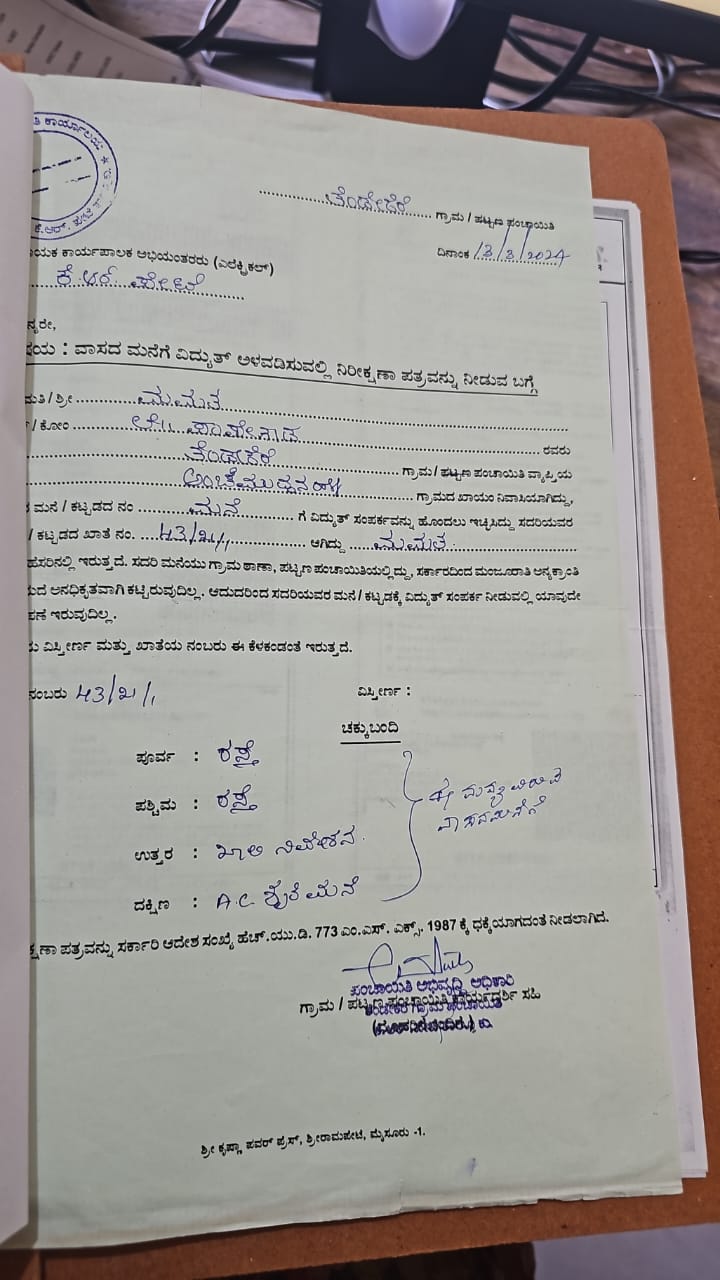 ತಿ ಕಾರ್ಯಾಲಯ *
ಕೆ.ಆರ್. ಪೇಟೆ
ತೆಂಡೇಕೆರೆ ಗ್ರಾಮ / ಪಟ್ಟಣ ಪಂಚಾಯಿತಿ
ದಿನಾಂಕ 13/3/2024
ಾಯಕ ಕಾರ್ಯಪಾಲಕ ಅಭಿಯಂತರರು (ಎಲೆಕ್ಟ್ರಿಕಲ್)
ಕೆ ಆರ್ ಪೇಟೆ
ನ್ಯರೇ,
ಷಯ : ವಾಸದ ಮನೆಗೆ ವಿದ್ಯುತ್ ಅಳವಡಿಸುವಲ್ಲಿ ನಿರೀಕ್ಷಣಾ ಪತ್ರವನ್ನು ನೀಡುವ ಬಗ್ಗೆ
ಮತಿ / ಶ್ರೀ ಮಮತ
/ ಕೋಂ ರವರು
ತೆಂಡೇಕೆರೆ ಗ್ರಾಮ / ಪಟ್ಟಣ ಪಂಚಾಯಿತಿ ವ್ಯಾಪ್ತಿಯ
ಅಂಚೆಮುದ್ದನಹಳ್ಳಿ ಗ್ರಾಮದ ಖಾಯಂ ನಿವಾಸಿಯಾಗಿದ್ದು,
ಮನೆ / ಕಟ್ಟಡದ ನಂ ಮನೆ ಗೆ ವಿದ್ಯುತ್ ಸಂಪರ್ಕವನ್ನು ಹೊಂದಲು ಇಚ್ಛಿಸಿದ್ದು ಸದರಿಯವರ
/ ಕಟ್ಟಡದ ಖಾತೆ ನಂ. 43/21/1 ಆಗಿದ್ದು ಮಮತ
ಹೆಸರಿನಲ್ಲಿ ಇರುತ್ತದೆ. ಸದರಿ ಮನೆಯು ಗ್ರಾಮ ಠಾಣಾ, ಪಟ್ಟಣ ಪಂಚಾಯಿತಿಯಲ್ಲಿದ್ದು, ಸರ್ಕಾರದಿಂದ ಮಂಜೂರಾತಿ ಅನ್ಯಕ್ರಾಂತಿ
ುದೆ ಅನಧಿಕೃತವಾಗಿ ಕಟ್ಟಿರುವುದಿಲ್ಲ. ಆದುದರಿಂದ ಸದರಿಯವರ ಮನೆ / ಕಟ್ಟಡಕ್ಕೆ ವಿದ್ಯುತ್ ಸಂಪರ್ಕ ನೀಡುವಲ್ಲಿ ಯಾವುದೇ
ಪಣೆ ಇರುವುದಿಲ್ಲ.
ು ವಿಸ್ತೀರ್ಣ ಮತ್ತು ಖಾತೆಯ ನಂಬರು ಈ ಕೆಳಕಂಡಂತೆ ಇರುತ್ತದೆ.
ನಂಬರು 43/21/1 ವಿಸ್ತೀರ್ಣ :
ಚಕ್ಕುಬಂದಿ
ಪೂರ್ವ : ರಸ್ತೆ
ಪಶ್ಚಿಮ : ರಸ್ತೆ
ಈ ಮಧ್ಯೆ ಇರುವ
ವಾಸದಮನೆಗೆ
ಉತ್ತರ : ಖಾಲಿ ನಿವೇಶನ.
ದಕ್ಷಿಣ : A.C ಶೈಲೆ ಮನೆ
ಕ್ಷಣಾ ಪತ್ರವನ್ನು ಸರ್ಕಾರಿ ಆದೇಶ ಸಂಖ್ಯೆ ಹೆಚ್.ಯು.ಡಿ. 773 ಎಂ.ಎಸ್. ಎಕ್ಸ್, 1987 ಕ್ಕೆ ಧಕ್ಕೆಯಾಗದಂತೆ ನೀಡಲಾಗಿದೆ.
ಪಂಚಾಯಿತಿ ಅಭಿವೃದ್ಧಿ ಅಧಿಕಾರಿ
ಗ್ರಾಮ / ಪಟ್ಟಣ ಪಂಚಾಯಿತಿ ಕಾರ್ಯದರ್ಶಿ ಸಹಿ
ತೆಂಡೇಕೆರೆ ಗ್ರಾಮ ಪಂಚಾಯಿತಿ
ಶ್ರೀ ಕೃಷ್ಣಾ ಪವರ್ ಪ್ರೆಸ್, ಶ್ರೀರಾಮಪೇಟೆ, ಮೈಸೂರು -1.